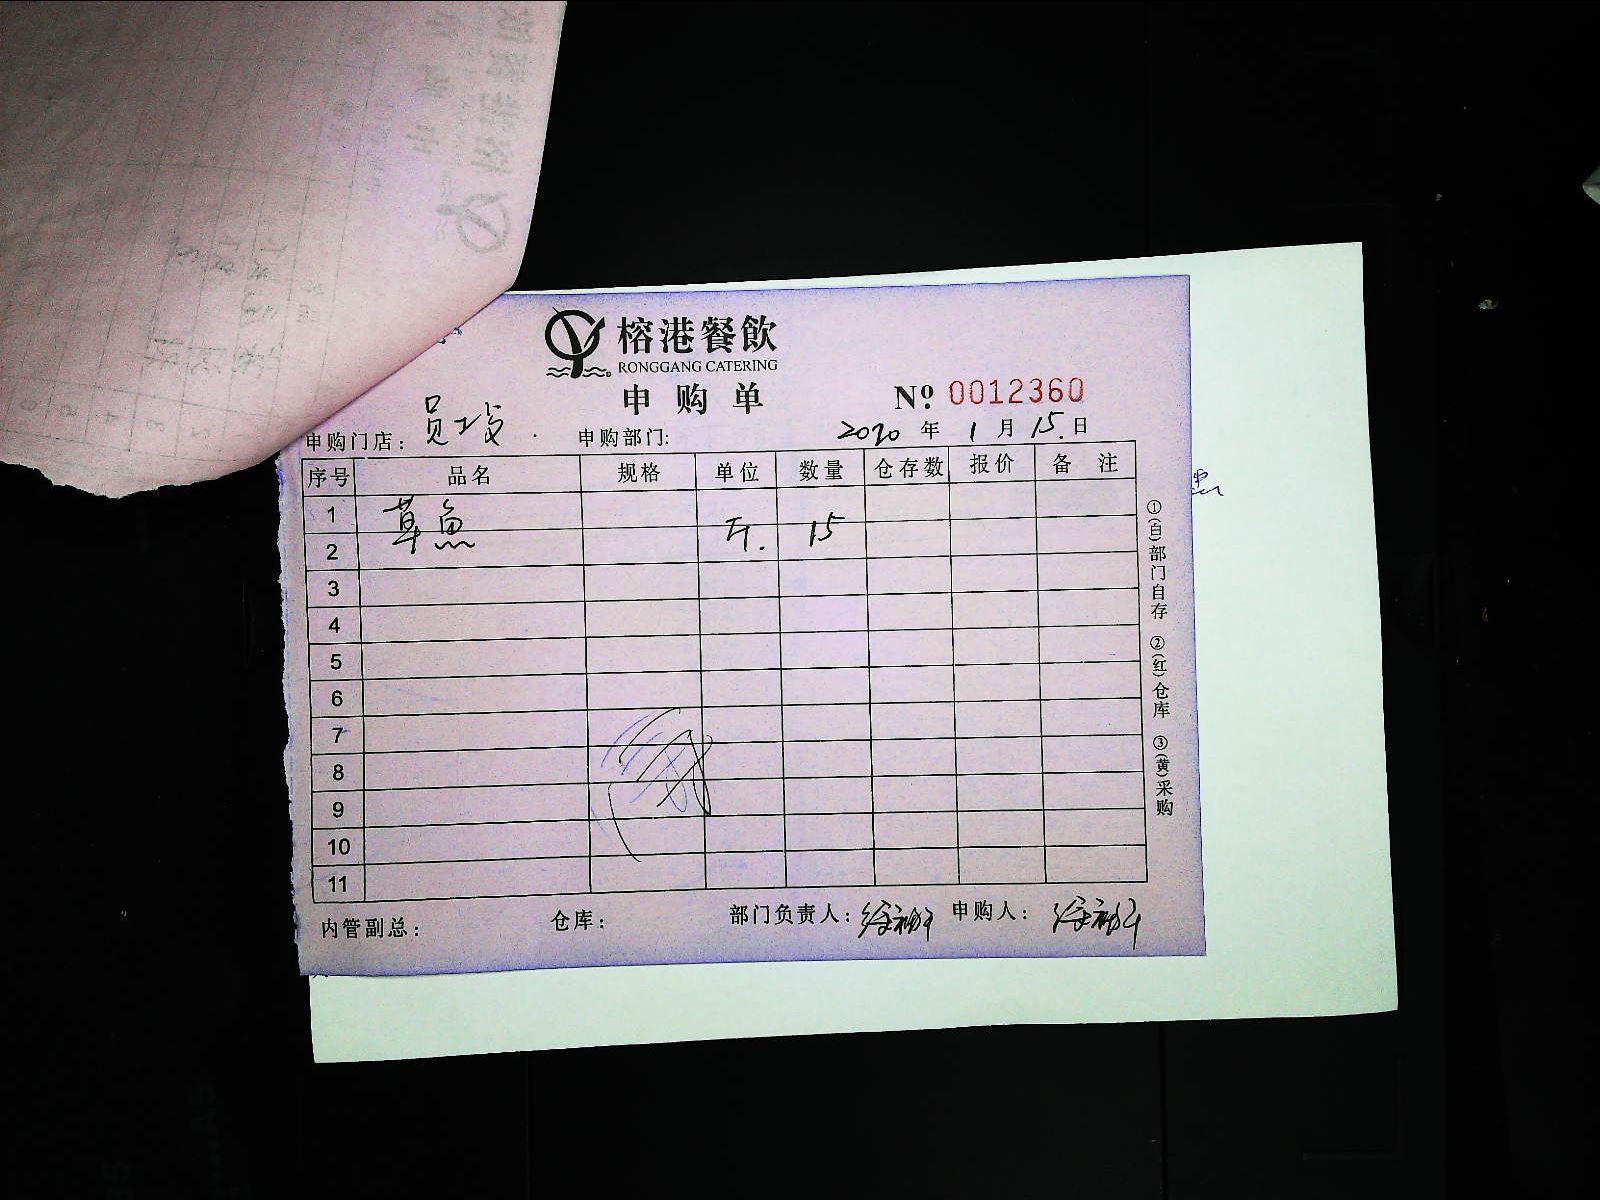 榕港餐飲
RONGGANG CATERING
申购单
№ 0012360
申购门店： 员工 申购部门： 2020 年 1 月 15 日
序号 品名 规格 单位 数量 仓存数 报价 备 注
1 草魚 斤 15
2
3
4
5
6
7
8
9
10
11
①(自)部门自存 ②(红)仓库 ③(黄)采购
内管副总： 仓库： 部门负责人： 申购人：